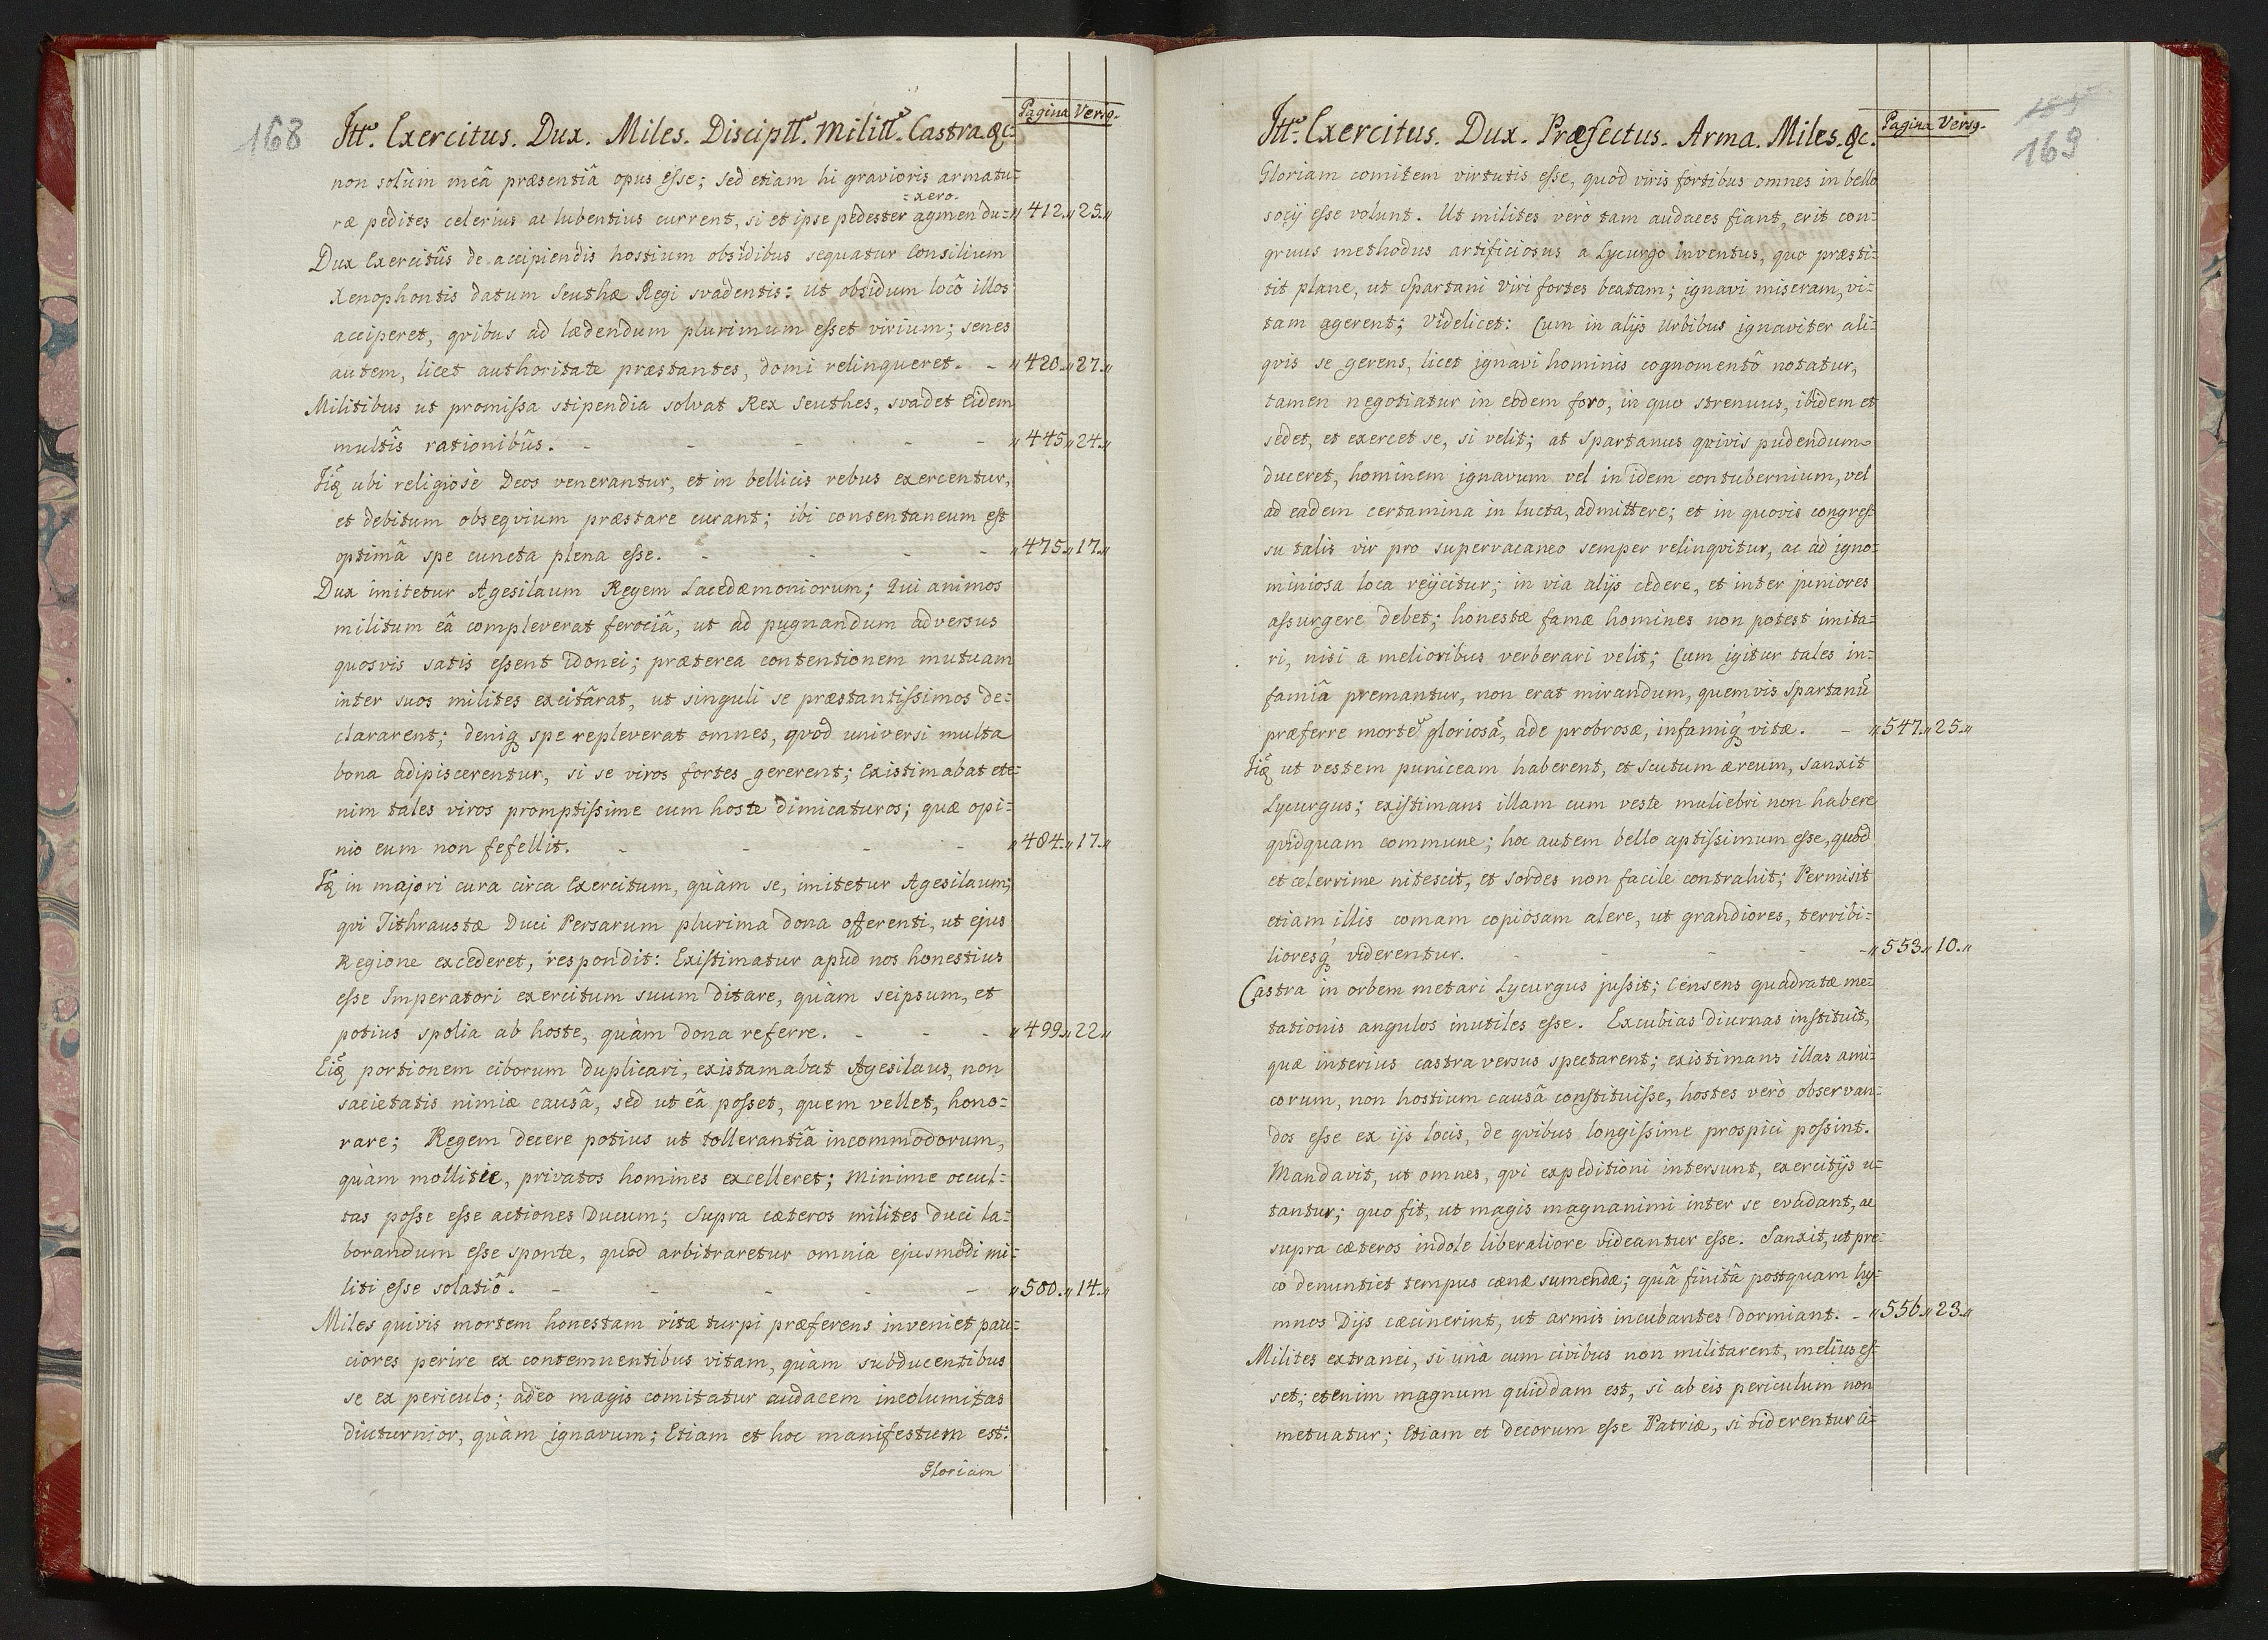 168
Itt. Exercitus. Dux. Miles. Disciptt. Militt. Castra. &c. Pagina Versq.
non solùm meâ præsentiâ opus esse; sed etiam hi gravioris armatu=
=xero.
ræ pedites celerius ac lubentius current, si et ipse pedester agmen du= „412.„25.„
Dux Exercitûs de accipiendis hostium obsidibus sequatur Consilium
Xenophontis datum Seuthæ Regi svadentis: ut obsidum locô illos
acciperet, qvibus ad lædendum plurimum esset virium; senes
autem, licet authoritate præstantes, domi relinqueret. - „420.„27.„
Militibus ut promissa stipendia solvat Rex Seuthes, svadet Eidem
multîs rationibûs. - - - - - „445„24.„
Iiq ubi religiosè Deos venerantur, et in bellicis rebus exercentur,
et debitum obseqvium præstare curant; ibi consentaneum est
optimâ spe cuncta plena esse. - - - - „475„17.„
Dux imitetur Agesilaum Regem Lacedæmoniorum; Qui animos
militum eâ compleverat ferociâ, ut ad pugnandum adversus
quosvis satis essent idonei; præterea contentionem mutuam
inter suos milites excitârat, ut singuli se præstantissimos de=
clararent; deniq spe repleverat omnes, qvòd universi multa
bona adipiscerentur, si se viros fortes gererent; Existimabat ete=
nim tales viros promptissime cum hoste dimicaturos; quæ opi=
nio eum non fefellit. - - - - „484.„17.„
Iq in majori cura circa Exercitum, quàm se, imitetur Agesilaum;
qvi Tithraustæ Duci Persarum plurima dona offerenti, ut ejus
Regione excederet, respondit: Existimatur apud nos honestius
esse Imperatori exercitum suum ditare, quàm seipsum, et
potius spolia ab hoste, quàm dona referre. - - - „499.„22„
Eiq portionem ciborum duplicari, existamabat Agesilaus, non
sacietatis nimiæ causâ, sed ut eâ posset, quem vellet, hono=
rare; Regem decere potius ut tollerantiâ incommodorum,
quàm mollitie, privatos homines excelleret; Minime occul=
tas posse esse actiones Ducum; Supra cæteros milites duci la=
borandum esse sponte, quòd arbitraretur omnia ejusmodi mi=
liti esse solatiô. - - - - - „500.„14.„
Miles quivis mortem honestam vitæ turpi præferens inveniet pau=
ciores perire ex contemnentibus vitam, quàm subducentibus
se ex periculo; adeo magis comitatur audacem incolumitas
diuturnior, quàm ignavum; Etiam et hoc manifestum est:
Gloriam
169
Itt. Exercitus. Dux. Præfectus. Arma. Miles. &c. Pagina Versq.
Gloriam comitem virtutis esse, quod viris fortibus omnes in bello
socij esse volunt. Ut milites verò tam audaces fiant, erit con=
gruus methodus artificiosus a Lycurgo inventus, quo præsti=
tit plane, ut Spartani viri fortes beatam; ignavi miseram, vi=
tam agerent; Videlicet: Cum in alijs Urbibus ignaviter ali=
qvis se gerens, licet ignavi hominis cognomentô notatur,
tamen negotiatur in eodem foro, in quo strenuus, ibidem et
sedet, et exercet se, si velit; at Spartanus qvivis pudendum
duceret, hominem ignavum vel in idem contubernium, vel
ad eadem certamina in lucta, admittere; et in quovis congres=
su talis vir pro supervacaneo semper relinqvitur, ac ad igno=
miniosa loca reijcitur; in via alijs cedere, et inter juniores
assurgere debet; honestæ famæ homines non potest imita=
ri, nisi a melioribus verberari velit; Cum igitur tales in=
famiâ premantur, non erat mirandum, quemvis Spartanũ
præferre mortẽ gloriosã, ade probrosæ, infamiq vitæ. - „547„25.„
Iiq ut vestem puniceam haberent, et scutum æreum, sanxit
Lycurgus; existimans illam cum veste muliebri non habere
qvidquam commune; hoc autem bello aptissimum esse, quòd
et celerrime nitescit, et sordes non facile contrahit; Permisit
etiam illis comam copiosam alere, ut grandiores, terribi=
lioresq viderentur. - - - - - „553.„10.„
Castra in orbem metari Lycurgus jussit; Censens quadratæ me=
tationis angulos inutiles esse. Excubias diurnas instituit,
quæ interius castra versus spectarent; existimans illas ami=
corum, non hostium causâ constituisse, hostes verò observan=
dos esse ex ijs locis, de qvibus longissime prospici possint.
Mandavit, ut omnes, qvi expeditioni intersunt, exercitijs u=
tantur; quo fit, ut magis magnanimi inter se evadant, ac
supra cæteros indole liberaliore videantur esse. Sanxit, ut præ=
co denuntiet tempus cænæ sumendæ; quâ finitâ postquam hy=
mnos Dijs cæcinerint, ut armis incubantes dormiant. - „556.„23.„
Milites extranei, si unà cum civibus non militarent, melius es=
set; etenim magnum quiddam est, si ab eis periculum non
metuatur; Etiam et decorum esse Patriæ, si viderentur Ci=